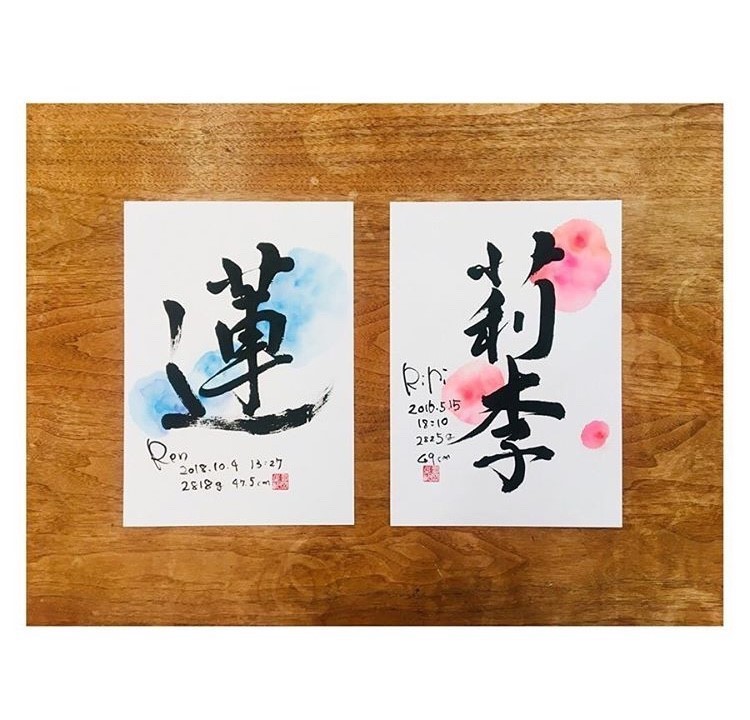 蓮
Ren
2018.10.4 13:27
2818g 47.5cm
莉李
RiRi
2016.5.15
18:10
2885g
49cm